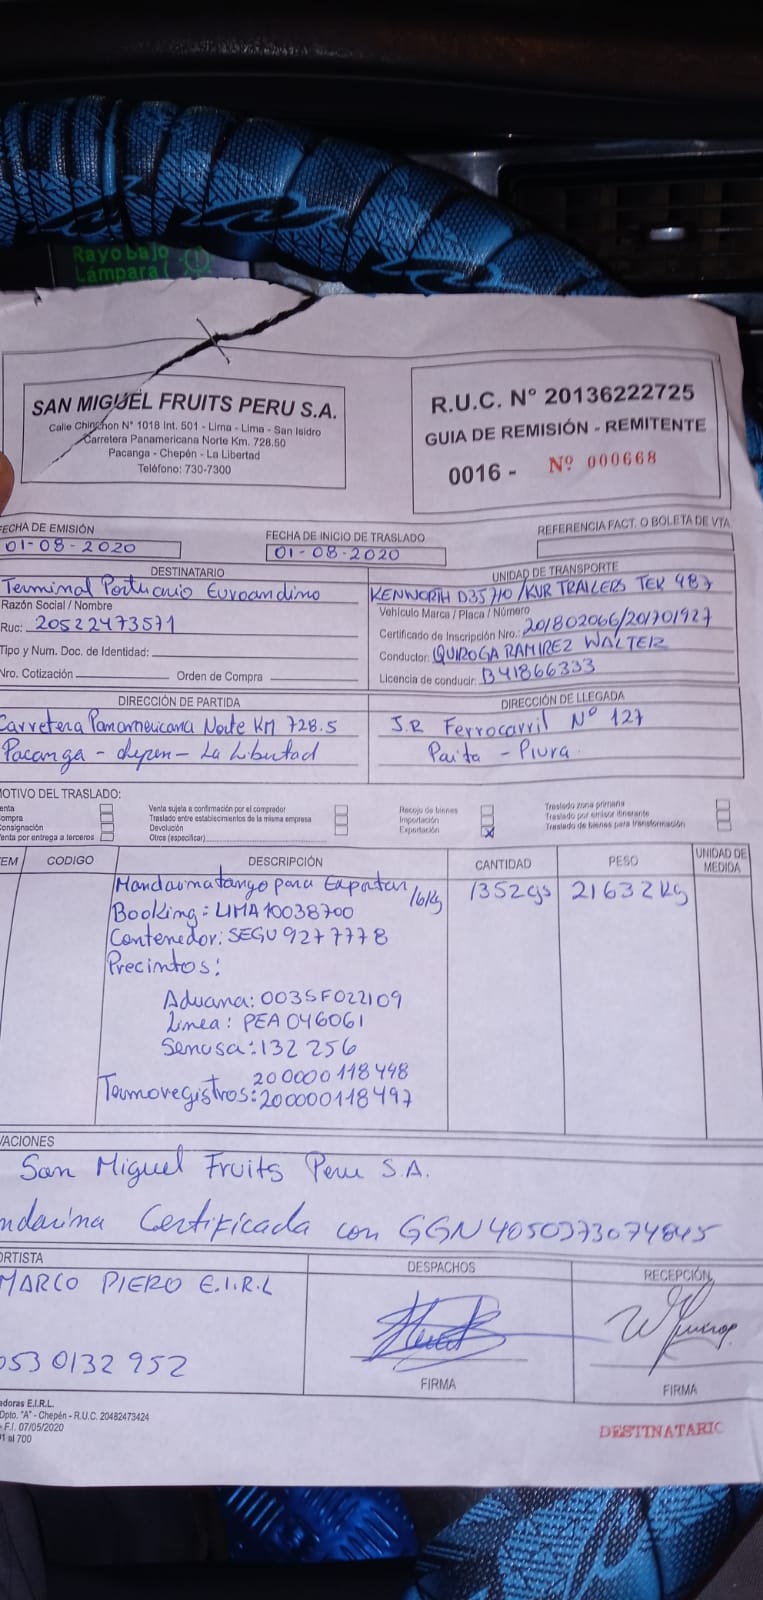 Rayo bajo
Lámpara (
SAN MIGUEL FRUITS PERU S.A.
Calle Chinchon N° 1018 Int. 501 - Lima - Lima - San Isidro
Carretera Panamericana Norte Km. 728.50
Pacanga - Chepén - La Libertad
Teléfono: 730-7300
R.U.C. N° 20136222725
GUIA DE REMISIÓN - REMITENTE
0016 - Nº 000668
FECHA DE EMISIÓN
01-08-2020
FECHA DE INICIO DE TRASLADO
01-08-2020
REFERENCIA FACT. O BOLETA DE VTA.
DESTINATARIO
Terminal Portuario Euroandino
Razón Social / Nombre
Ruc: 20522473571
Tipo y Num. Doc. de Identidad:
Nro. Cotización Orden de Compra
UNIDAD DE TRANSPORTE
KENWORTH D35710/KUR TRAILERS TEK 987
Vehículo Marca / Placa / Número
Certificado de Inscripción Nro.: 201802066/201701927
Conductor: QUIROGA RAMIREZ WALTER
Licencia de conducir: B41866333
DIRECCIÓN DE PARTIDA
Carretera Panamericana Norte KM 728.5
Pacanga - chepen - La Libertad
DIRECCIÓN DE LLEGADA
J.R Ferrocarril N° 127
Paita - Piura
MOTIVO DEL TRASLADO:
enta
ompra
onsignación
enta por entrega a terceros
Venta sujeta a confirmación por el comprador
Traslado entre establecimientos de la misma empresa
Devolución
Otros (especificar)
Recojo de bienes
Importación
Exportación x
Traslado zona primaria
Traslado por emisor itinerante
Traslado de bienes para transformación
EM CODIGO DESCRIPCIÓN CANTIDAD PESO UNIDAD DE MEDIDA
Mandarina tango para Exportar /16Kg 1352 cjs 21632 Kg
Booking: LIMA10038700
Contenedor: SEGU 9277778
Precintos:
Aduana: 003SF022109
Linea: PEA 046061
Senasa: 132256
200000118498
Termoregistros: 200000118497
VACIONES
San Miguel Fruits Peru S.A.
ndarina Certificada con GGN 4050373074845
ORTISTA
MARCO PIERO E.I.R.L
0530132952
DESPACHOS
FIRMA
RECEPCIÓN
FIRMA
adoras E.I.R.L.
Dpto. "A" - Chepén - R.U.C. 20482473424
- F.I. 07/05/2020
01 al 700
DESTINATARIO